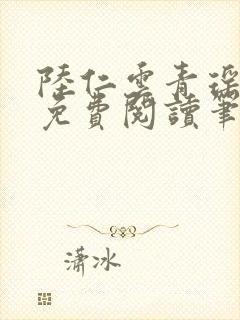 陸仁雲青瑤
免費閱讀筆
瀟冰